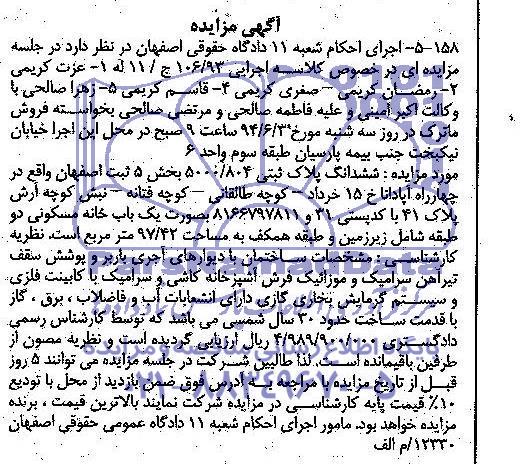 آگهی مزایده
۱۵۸-۵- اجرای احکام شعبه ۱۱ دادگاه حقوقی اصفهان در نظر دارد در جلسه
مزایده ای در خصوص کلاسه اجرایی ۱۰۶/۹۳ ج / ۱۱ له ۱- عزت کریمی
۲- رمضان کریمی – صغری کریمی ۴- قاسم کریمی ۵- زهرا صالحی با
وکالت اکبر امینی و علیه فاطمه صالحی و مرتضی صالحی بخواسته فروش
ماترک در روز سه شنبه مورخ ۹۴/۶/۳ ساعت ۹ صبح در محل این اجرا خیابان
نیکبخت جنب بیمه پارسیان طبقه سوم واحد ۶
مورد مزایده : ششدانگ پلاک ثبتی ۵۰۰۰/۸۰۴ بخش ۵ ثبت اصفهان واقع در
چهارراه آپادانا خ ۱۵ خرداد – کوچه طالقانی – کوچه فتانه – نبش کوچه آرش
پلاک ۴۱ با کدپستی ۳۱ و ۸۱۶۶۷۹۷۸۱۱ بصورت یک باب خانه مسکونی دو
طبقه شامل زیرزمین و طبقه همکف به مساحت ۹۷/۴۲ متر مربع است. نظریه
کارشناسی : مشخصات ساختمان با دیوارهای آجری باربر و پوشش سقف
تیرآهن سرامیک و موزائیک فرش آشپزخانه کاشی و سرامیک با کابینت فلزی
و سیستم گرمایش بخاری گازی دارای انشعابات آب و فاضلاب ، برق ، گاز
با قدمت ساخت حدود ۳۰ سال شمسی می باشد که توسط کارشناس رسمی
دادگستری ۴/۹۸۹/۹۰۰/۰۰۰ ریال ارزیابی گردیده است و نظریه مصون از
طرفین باقیمانده است. لذا طالبین شرکت در جلسه مزایده می توانند ۵ روز
قبل از تاریخ مزایده با مراجعه به آدرس فوق ضمن بازدید از محل با تودیع
۱۰٪ قیمت پایه کارشناسی در مزایده شرکت نمایند بالاترین قیمت ، برنده
مزایده خواهد بود. مامور اجرای احکام شعبه ۱۱ دادگاه عمومی حقوقی اصفهان
۱۲۳۳۰/م الف